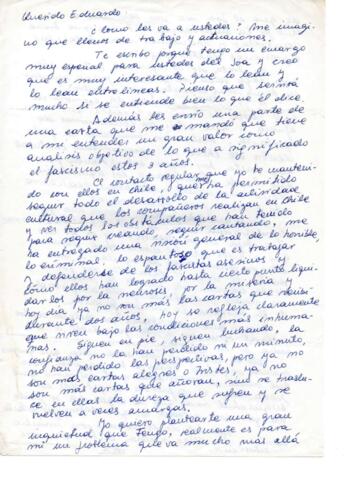 Querido Eduardo:
¿Cómo les va a ustedes? Me imagi-
no que llenos de trabajo y actuaciones.
Te escribo porque tengo un encargo
muy especial para ustedes del Joa y creo
que es muy interesante que lo lean y
lo lean entrelíneas. Pienso que servirá
mucho si se entiende bien lo que él dice.
Además les envío una parte de
una carta que me mandó que tiene
a mi entender un gran valor como
análisis objetivo de lo que a significado
el fascismo estos 3 años.
El contacto regular que yo he manteni-
do con ellos en Chile, me ha permitido
seguir todo el desarrollo de la actividad
cultural que los compañeros realizan en Chile
y ver todos los obstáculos que han tenido
para seguir creando, seguir cantando, me
ha entregado una visión general de lo horrible,
lo criminal, lo espantoso que es trabajar
y defenderse de los fascistas asesinos y
cómo ellos han logrado hasta cierto punto liqui-
darlos por la neurosis, por la miseria y
hoy día ya no son más las cartas que recibí
durante dos años, hoy se refleja claramente
que viven bajo las condiciones más inhuma-
nas. Siguen en pie, siguen luchando, la
confianza no la han perdido ni un minuto,
no han perdido las perspectivas, pero ya no
son más cartas alegres o tristes, ya no
son más cartas que añoran, se traslu-
ce en ellas la dureza que sufren y se
vuelven a veces amargas.
Yo quiero plantearte una gran
inquietud que tengo, realmente es para
mí un problema que va mucho más allá